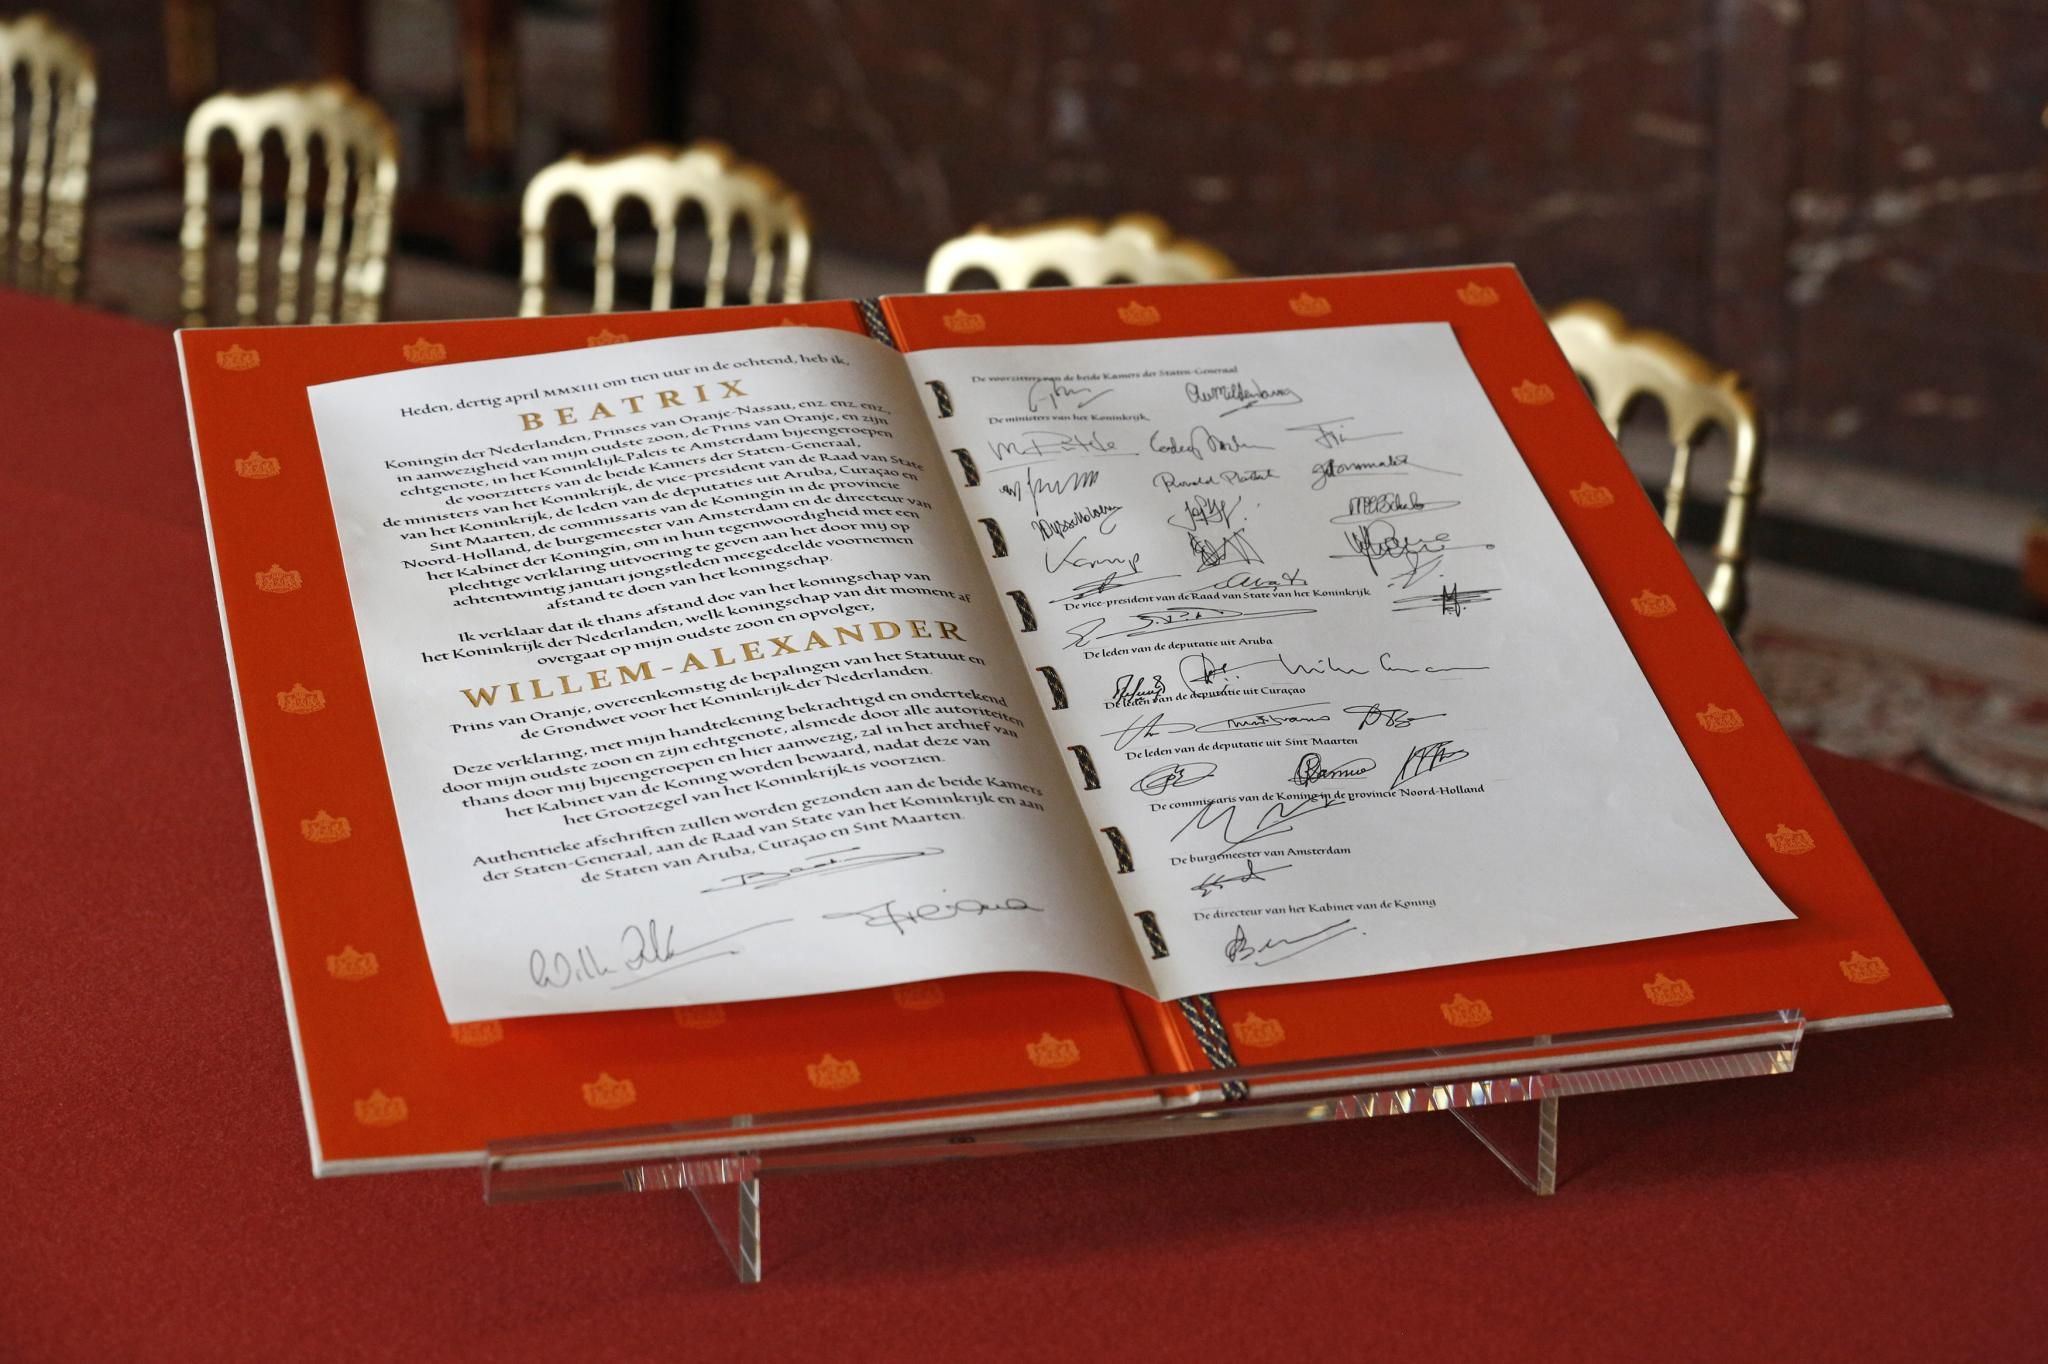 Heden, dertig april MMXIII om tien uur in de ochtend, heb ik,
BEATRIX
Koningin der Nederlanden, Prinses van Oranje-Nassau, enz. enz. enz.,
in aanwezigheid van mijn oudste zoon, de Prins van Oranje, en zijn
echtgenote, in het Koninklijk Paleis te Amsterdam bijeengeroepen
de voorzitters van de beide Kamers der Staten-Generaal,
de ministers van het Koninkrijk, de vice-president van de Raad van State
van het Koninkrijk, de leden van de deputaties uit Aruba, Curaçao en
Sint Maarten, de commissaris van de Koningin in de provincie
Noord-Holland, de burgemeester van Amsterdam en de directeur van
het Kabinet der Koningin, om in hun tegenwoordigheid met een
plechtige verklaring uitvoering te geven aan het door mij op
achtentwintig januari jongstleden meegedeelde voornemen
afstand te doen van het koningschap.
Ik verklaar dat ik thans afstand doe van het koningschap van
het Koninkrijk der Nederlanden, welk koningschap van dit moment af
overgaat op mijn oudste zoon en opvolger,
WILLEM-ALEXANDER
Prins van Oranje, overeenkomstig de bepalingen van het Statuut en
de Grondwet voor het Koninkrijk der Nederlanden.
Deze verklaring, met mijn handtekening bekrachtigd en ondertekend
door mijn oudste zoon en zijn echtgenote, alsmede door alle autoriteiten
thans door mij bijeengeroepen en hier aanwezig, zal in het archief van
het Kabinet van de Koning worden bewaard, nadat deze van
het Grootzegel van het Koninkrijk is voorzien.
Authentieke afschriften zullen worden gezonden aan de beide Kamers
der Staten-Generaal, aan de Raad van State van het Koninkrijk en aan
de Staten van Aruba, Curaçao en Sint Maarten.
De voorzitters van de beide Kamers der Staten-Generaal
De ministers van het Koninkrijk,
Ronald Plasterk
Kamp
De vice-president van de Raad van State van het Koninkrijk
De leden van de deputatie uit Aruba
De leden van de deputatie uit Curaçao
De leden van de deputatie uit Sint Maarten
De commissaris van de Koning in de provincie Noord-Holland
De burgemeester van Amsterdam
De directeur van het Kabinet van de Koning